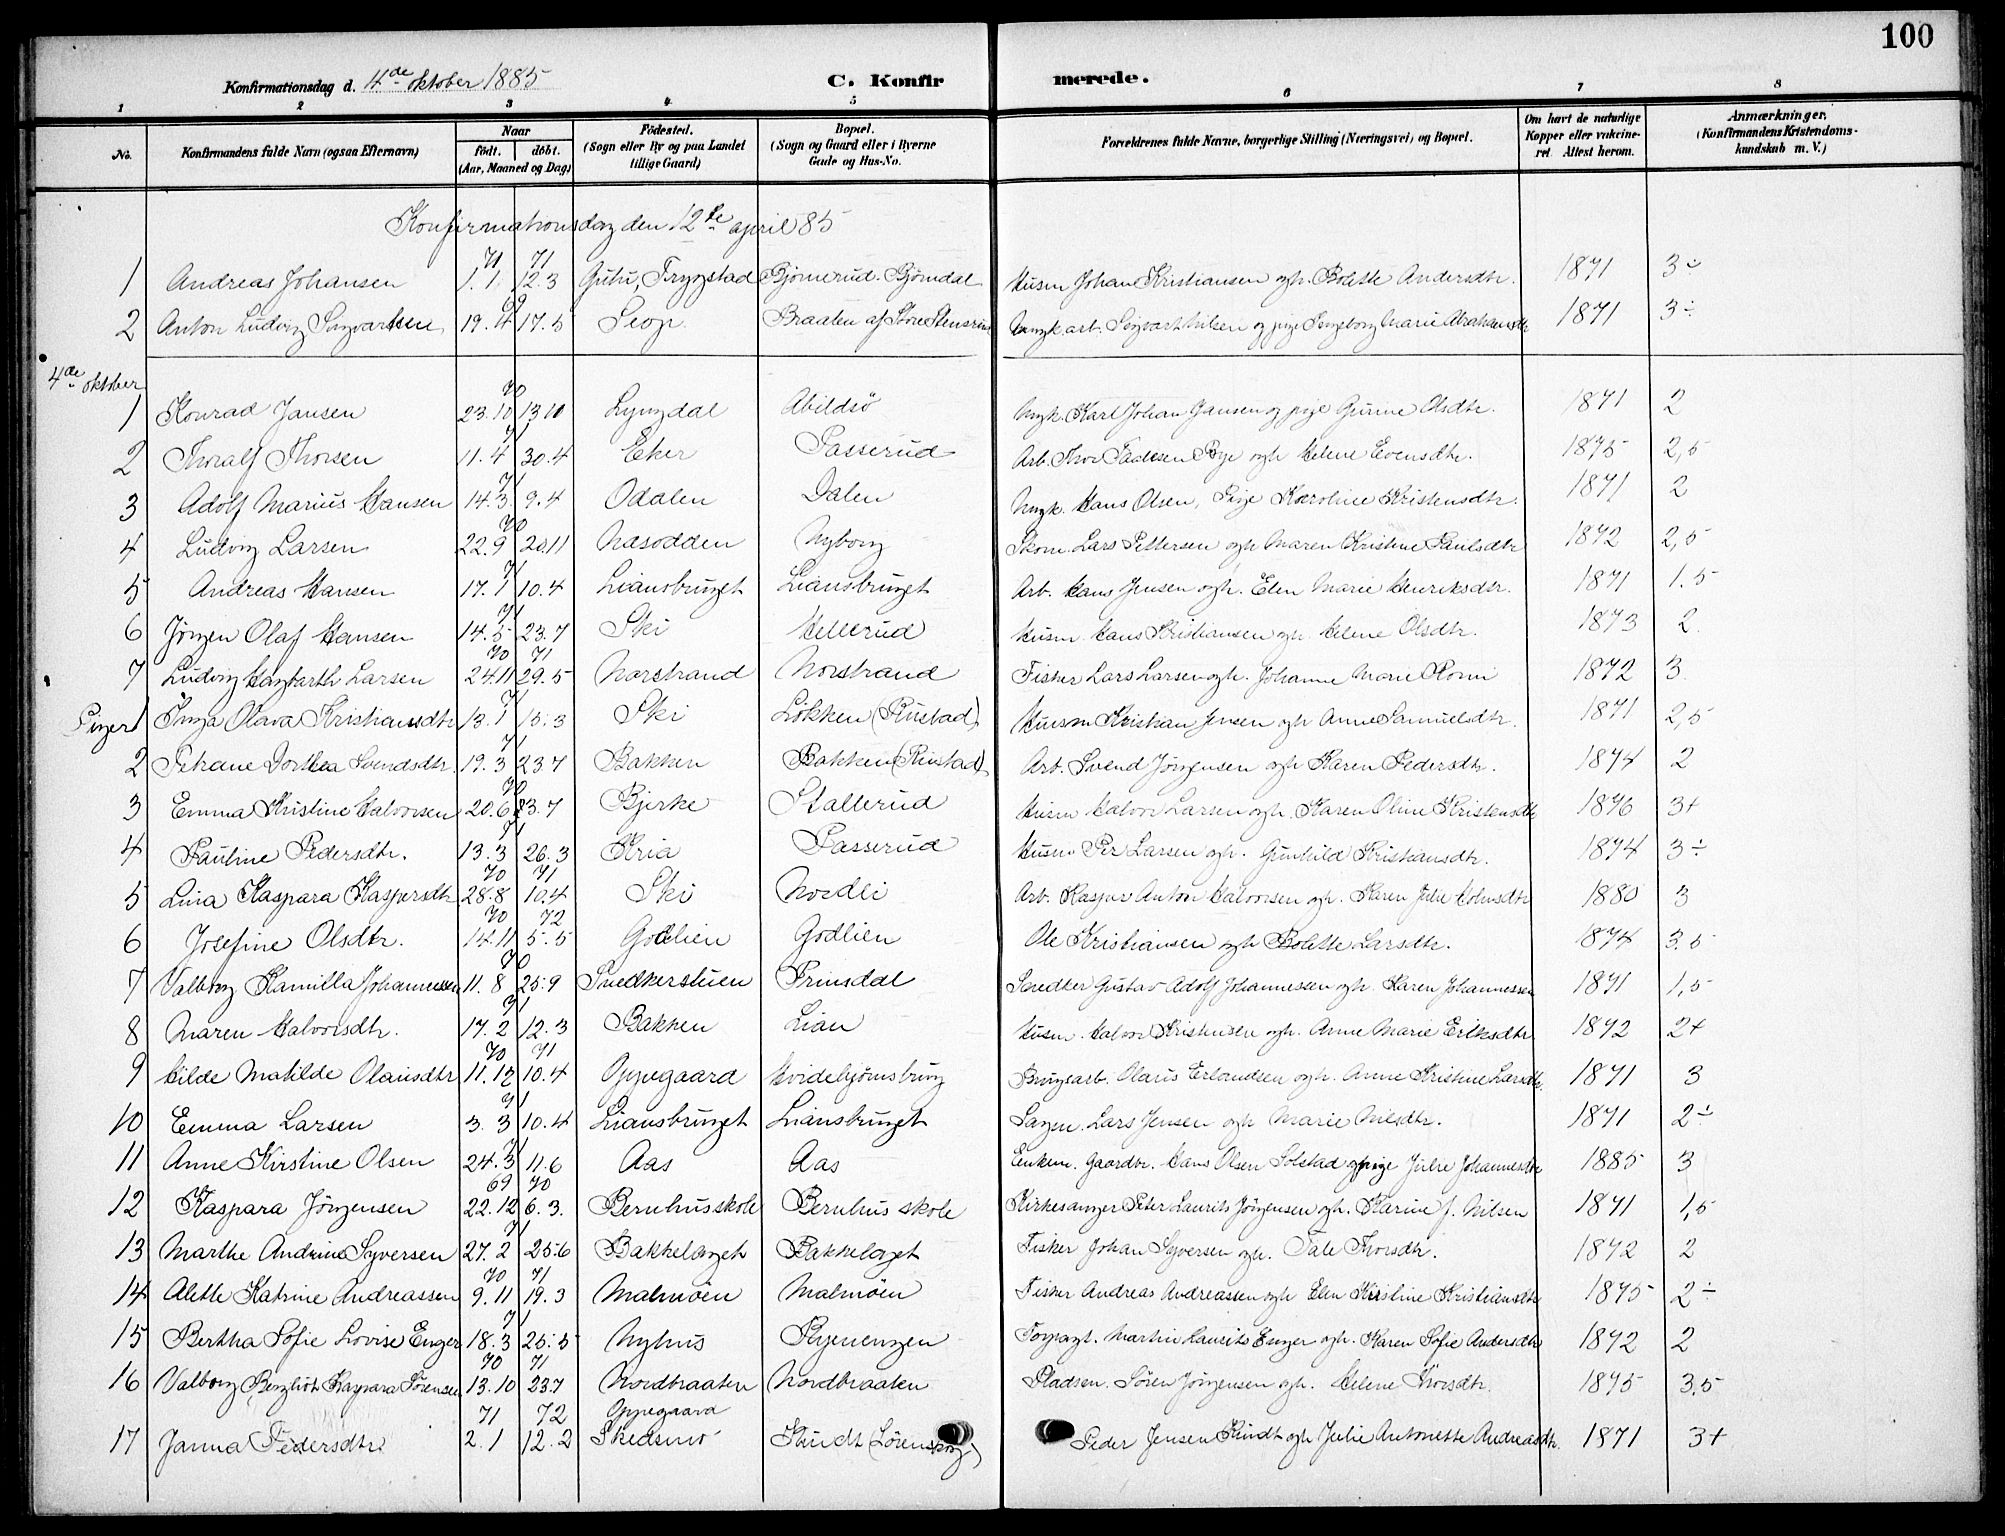 100
Konfirmationsdag d. 4de oktober 1885 C. Konfirmerede.
1 2 3 4 5 6 7 8
No. Konfirmandens fulde Navn (ogsaa Efternavn) Naar født. døbt. (Aar, Maaned og Dag) Fødested. (Sogn eller By og paa Landet tillige Gaard) Bopæl. (Sogn og Gaard eller i Byerne Gade og Hus-No. Forældrenes fulde Navne, borgerlige Stilling (Næringsvei) og Bopæl. Om havt de naturlige Kopper eller vakcineret. Attest herom. Anmærkninger. (Konfirmandens Kristendomskundskab m. V.)
Konfirmationsdag den 12te april 85
71 71
1 Andreas Johansen 1.1 12.3 Gutu, Trygstad Bjørnerud. Bjørndal Husm Johan Kristiansen og h. Bolette Andersdtr. 1871 3÷
69
2 Anton Ludvig Sigvartsen 19.4 17.5 Seog Braaten af Store Stensrud Ungk. arb. Sigvart Nilsen og pige Ingeborg Marie Abrahamsdtr 1871 3÷
4de oktober
70
1 Konrad Jansen 23.10 13.10 Lyngdal Abildsø Ungk. Karl Johan Jansen og pige Gurine Olsdtr. 1871 2
71
2 Thoralf Thorsen 11.4 30.4 Eker Passerud Arb. Thor Paulsen Rye og h Helene Evensdtr. 1875 2,5
71
3 Adolf Marius Hansen 14.3 9.4 Odalen Dalen Ungk. Hans Olsen, Pige Karoline Kristensdtr. 1871 2
70
4 Ludvig Larsen 22.9 20.11 Næsodden Nyborg Skom. Lars Pettersen og h Maren Kristine Paulsdtr 1872 2,5
71
5 Andreas Hansen 17.1 10.4 Liansbruget Liansbruget Arb. Hans Jensen og h. Elen Marie Henriksdtr. 1871 1.5
71
6 Jørgen Olaf Hansen 14.5 23.7 Ski Hellerud Husm. Hans Kristiansen og h. Helene Olsdtr. 1873 2
70 71
7 Ludvig Hagbarth Larsen 24.11 29.5 Norstrand Norstrand Fisker Lars Larsen og h. Johanne Marie 1872 3
71
Piger 1 Inga Olava Kristiansdtr 13.1 15.3 Ski Løkken (Rustad) Husm Kristian Jensen og h Anne Samuelsdtr. 1871 2,5
71
2 Petrane Dorthea Svendsdtr. 19.3 23.7 Bakken Bakken (Rustad) Arb. Svend Jørgensen og h Karen Pedersdtr. 1874 2
70
3 Emma Kristine Halvorsen 20.6 23.7 Bjerke Stallerud Husm Halvor Larsen og h. Karen Oline Kristensdtr 1876 3+
71
4 Pauline Pedersdtr. 13.3 26.3 Kria Passerud Husm. Per Larsen og h. Gunhild Kristiansdtr. 1874 3÷
70 71
5 Lina Kaspara Kaspersdtr 28.8 10.4 Ski Nordli Arb. Kasper Anton Halvorsen og h. Karen Julie Holmsdtr 1880 3
70 72
6 Josefine Olsdtr. 14.11 5.5 Godlien Godlien Ole Kristiansen og h Bolette Larsdtr. 1874 3.5
70
7 Valborg Kamilla Johannessen 11.8 25.9 Snedkerstuen Prinsdal Snedker Gustav Adolf Johannessen og h. Karen Johannessen 1871 1,5
71
8 Maren Halvorsdtr. 17.2 12.3 Bakken Lian Husm. Halvor Kristensen og h. Anne Marie Eriksdtr 1872 2+
70 71
9 Hilde Matilde Olausdtr 11.12 10.4 Oppegaard Hvidebjørnsbrug Brugsarb. Olaus Erlandsen og h. Anne Kristine Larsdtr. 1871 3
71
10 Emma Larsen 3.3 10.4 Liansbruget Liansbruget Sagm. Lars Jensen og h Marie Nilsdtr. 1871 2÷
71
11 Anne Kirstine Olsen 24.3 11.6 Aas Aas Enkem. Gaardbr. Hans Olsen Solstad og pige Julie Johannesdtr 1885 3
69 70
12 Kaspara Jørgensen 22.12 6.3. Bernhusskole Bernhus skole Kirkesanger Peter Laurits Jørgensen og h. Karine J. Nilsen 1871 1,5
71
13 Marthe Andrine Syversen 27.2 25.6 Bakkelaget Bakkelaget Fisker Johan Syversen og h. Tale Thorsdtr. 1872 2
70 71
14 Alette Katrine Andreassen 9.11 19.3 Malmøen Malmøen Fisker Andreas Andreassen og h Elen Kirstine Kristiansdtr 1875 2÷
71
15 Bertha Sofie Lovise Enger 18.3 25.5 Nyhus Ryenengen Martin Laurits Enger og h. Karen Sofie Andersdtr 1872 2
70 71
16 Valborg Bergliot Kaspara Sørensen 13.10 23.7 Nordbraaten Nordbraaten Pladsm. Søren Jørgensen og h. Helene Thorsdtr. 1875 3,5
71 72 Oppegaard
17 Janna Pedersdtr. 2.1 12.2 Skedsmo Kindt (Lørenskog) Peder Jensen Kindt og h Julie Antonette Andreasdtr. 1871 3+